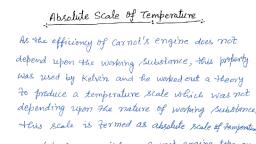 Absolute Scale of Temperature
As the efficiency of Carnot's engine does not
depend upon the working substance, this property
was used by Kelvin and he worked out a theory
to produce a temperature scale which was not
depending upon the nature of working substance,
this scale is termed as absolute scale of temperature